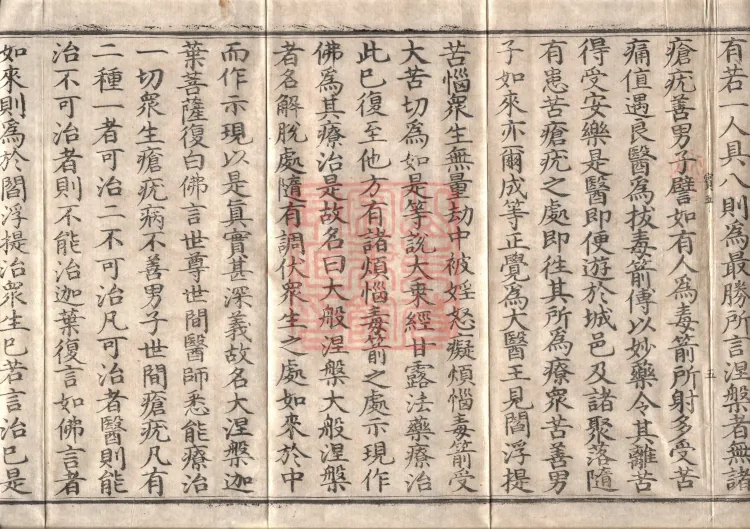 有若一人具八則為最勝所言涅槃者無諸
瘡疣善男子譬如有人為毒箭所射多受苦
痛值遇良醫為拔毒箭傅以妙藥令其離苦
得受安樂是醫即便遊於城邑及諸聚落隨
有患苦瘡疣之處即往其所為療眾苦善男
子如來亦爾成等正覺為大醫王見閻浮提
苦惱眾生無量劫中被婬怒癡煩惱毒箭受
大苦切為如是等說大乘經甘露法藥療治
此已復至他方有諸煩惱毒箭之處示現作
佛為其療治是故名曰大般涅槃大般涅槃
者名解脫處隨有調伏眾生之處如來於中
而作示現以是真實甚深義故名大涅槃迦
葉菩薩復白佛言世尊世間醫師悉能療治
一切眾生瘡疣病不善男子世間瘡疣凡有
二種一者可治二不可治凡可治者醫則能
治不可治者則不能治迦葉復言如佛言者
如來則為於閻浮提治眾生已若言治已是
五